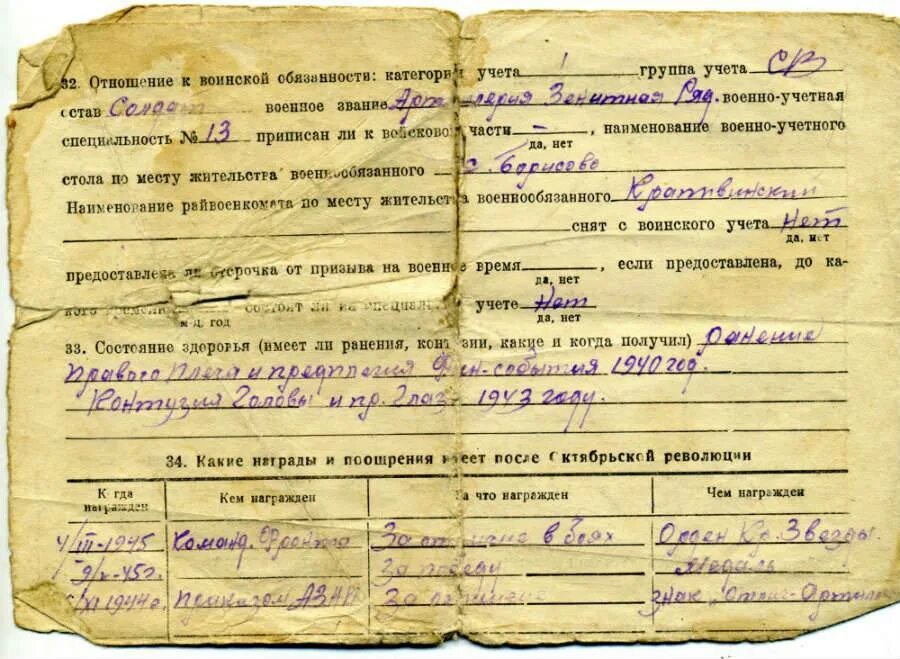 32. Отношение к воинской обязанности: категория учета I группа учета СВ
состав Солдат военное звание Артиллерия Зенитная Ряд. военно-учетная
специальность № 13 приписан ли к войсковой части – , наименование военно-учетного
да, нет
стола по месту жительства военнообязанного с. Борисово
Наименование райвоенкомата по месту жительства военнообязанного Крапивинский
снят с воинского учета Нет
да, нет
предоставлена ли отсрочка от призыва на военное время , если предоставлена, до ка-
да, нет
кого времени состоит ли на специальном учете Нет
м-ц, год да, нет
33. Состояние здоровья (имеет ли ранения, контузии, какие и когда получил) ранение
правого плеча и предплечия Фин-события 1940 год.
Контузия Головы и пр. Глаз 1943 году.
34. Какие награды и поощрения имеет после Октябрьской революции
Когда награжден Кем награжден За что награжден Чем награжден
4/III-1945 Команд. Фронта За отличие в боях Орден Кр. Звезды.
9/V-45г. За победу Медаль
/XI 1944г. Приказом За отличие знак „Отлич-Артил